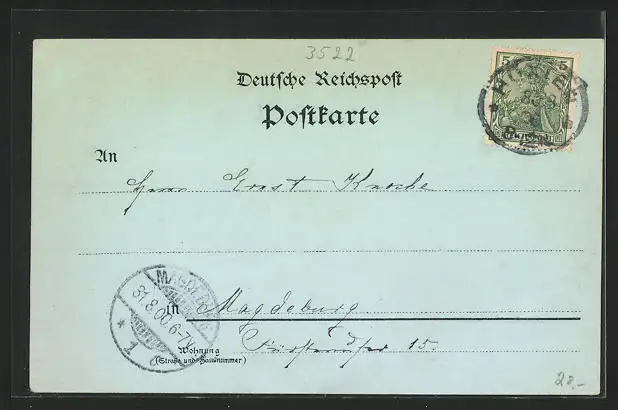 3522
Deutsche Reichspost
Postkarte
5 5
An
Herrn Ernst Knoche
MAGDEBURG
31.8.00.6-7V.
* 1
in Magdeburg
Fürstenufer 15.
Wohnung
(Straße und Hausnummer)
28,-